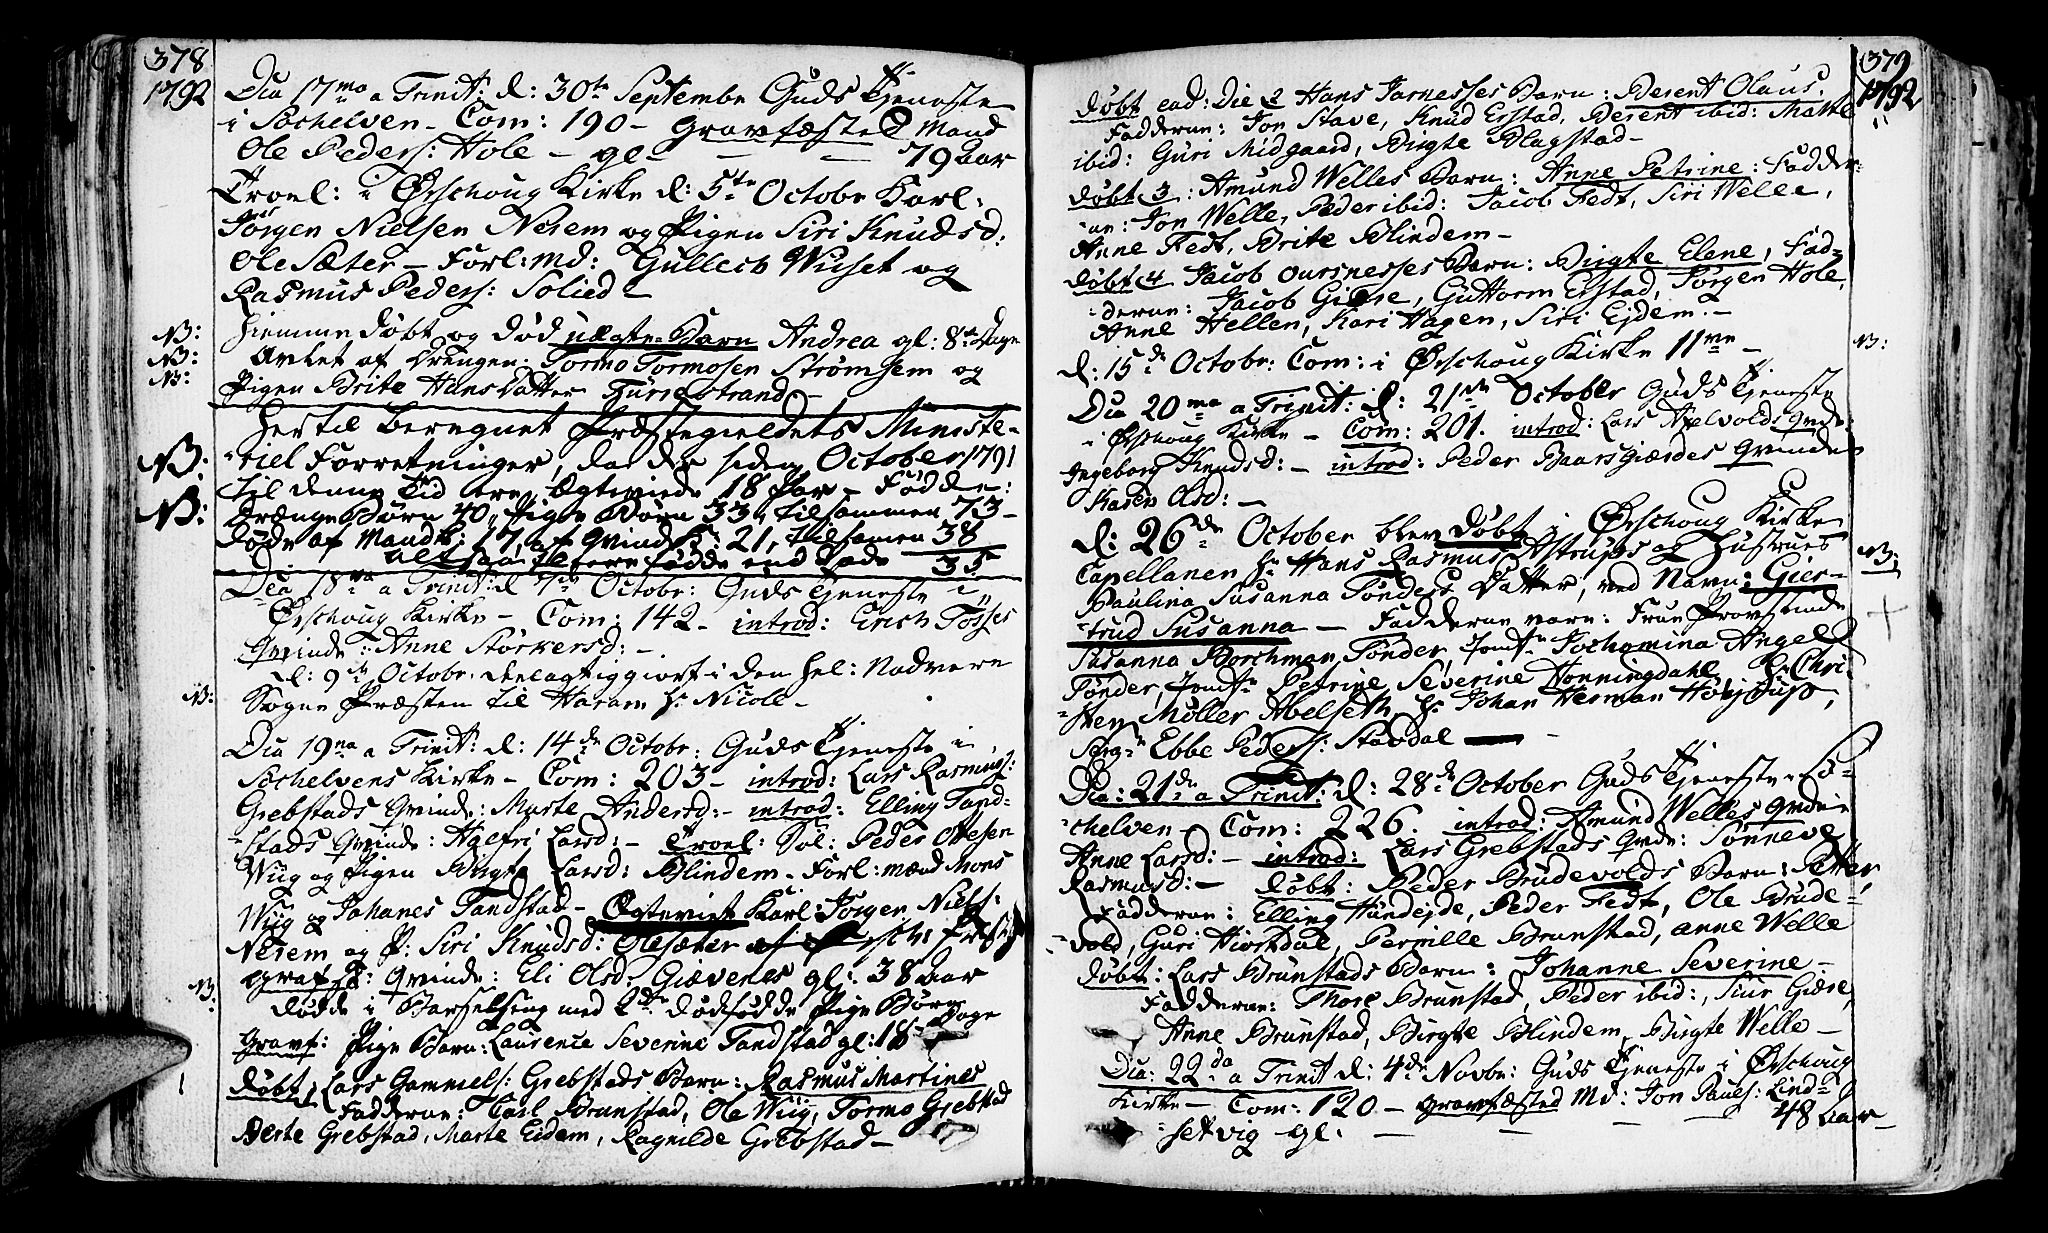 378
1792
Dca 17ma a Trinit: d: 30te Septembr Guds Tjeneste
i Søchelven - Com: 190 - Gravfæsted Mand
Ole Peders: Hole - gl - - - 79 aar
Troel: i Ørschoug Kirke d: 5te Octobr Karl:
Jørgen Nielsen Nerem og Pigen Siri Knudsd:
Ole Sæter - Forl: md: Gullech Wiset og
Rasmus Peders: Solied -
NB: hiemme døbt og død uægte Barn Andrea gl: 8te Dage
NB: Avlet af Drengen: Tormo Tormosen Strømhem og
NB: Pigen Brite HansDatter Hursestrand -
Her til beregnet Præstegieldets Ministe-
NB: riel Forretninger, da der siden October 1791
til denne Tid ere Ægteviede 18 Par - Fødde:
NB: Drænge Børn 40, Pige Børn 33, tilsammen 73 -
Døde af Mandk: 17, af Qvindk: 21, tilsamen 38
altsaa flere fødde end døde 35
Dca 18va a Trinit: d 7de Octobr: Guds Tjeneste i
Ørschoug Kirke - Com: 142 - introd: Erich Tosses
Qvinde: Anne Størkersd: -
d: 9de Octobr: deelagtiggiort i den hel: Nadvere
NB: Sogne Præsten til Haram hr Nicoll -
Dca 19na a Trinit: d: 14de Octobr: Guds Tjeneste i
Søchelvens Kirke - Com: 203 - introd: Lars Rasmus:
Grebstads Qvinde: Marte Andersd: - introd: Elling Tand-
stads Qvinde: Aaselfri Larsd: - Troel: Sol: Peder Ottesen
Wiig og Pigen Birgte Larsd: Blindem - Forl: mænd Mons
Wiig og Johanes Tandstad - Ægteviet Karl: Jørgen Niels:
Nerem og P: Siri Knudsd: Olesæter
Gravf: Qvinde: Eli Olsd: Giævenes gl: 38 aar
NB: døde i Barselseng med 2de dødfødde Pige Børn
Gravf: Pige Barn: Laurence Severine Tandstad gl: 18 Dage
Døbt 1 Lars Gammels: Grebstads Barn: Rasmus Martines
Fadderne: Carl Brunstad, Ole Wiig, Tormo Grebstad
Berte Grebstad, Marte Eidem, Ragnilde Grebstad -
379
1792
Døbt ead: Die 2 Hans Jarnesses Barn: Berent Olaus:
Fadderne: Jon Stave, Knud Erstad, Berent ibid: Matte
ibid: Guri Midgaard, Birgte Blagstad -
Døbt 3: Amund Welles Barn: Anne Petrine: Fadder-
ne: Jon Welle, Peder ibid: Jacob Fedt, Siri Welle,
Anne Fedt, Brite Blindem -
Døbt 4 Jacob Oursnesses Barn: Birgte Elene, Fad-
derne: Jacob Giære, Guttorm Erstad, Jørgen Hole,
Anne Hellen, Kari Hagen, Siri Ejdem. -
d: 15de Octobr: Com: i Ørschoug Kirke 11ve -
Dca 20ma a Trinit: d: 21de October Guds Tjeneste
i Ørschoug Kirke - Com: 201. introd: Lars Apelvolds Qvde:
Ingeborg Knudsd: - introd: Peder Baarsgiærdes Qvinde
Karen Olsd: -
d: 26de October blev Døbt i Ørschoug Kirke
NB: Capellanen hr Hans Rasmus Astrups og Hustrues
Paulina Susanna Tønders Datter, ved Navn: Gier-
trud Susanna - Fadderne vare: Frue Provstinde
Susanna Borchman Tønder, Jomfr Jochumina Angel
Tønder, Jomfr Petrine Severine Honningdahl, Hr Chri-
sten Møller Abelseth, hr Johan Herman Høyjdup,
Serg: Ebbe Peders: Stavdal -
Dca: 21de a Trinit: d: 28de October Guds Tjeneste i Sø-
chelven - Com: 226. introd: Amund Welles Qvde:
Anne Larsd: - introd: Lars Grebstads Qvde: Sønneve
Rasmusd: - Døbt: Peder Brudevolds Barn: Petter,
Fadderne: Elling Hundejde, Peder Fedt, Ole Brude-
vold, Guri Hiortdal, Pernille Brunstad, Anne Welle
Døbt: Lars Brunstads Barn: Johanne Severine -
Fadderne: Thore Brunstad, Peder ibid:, Siur Giære,
Anne Brunstad, Birgte Blindem, Birgte Welle -
Dca: 22da a Trinit d: 4de Novbr: Guds Tjeneste i Ørschoug
Kirke - Com: 120 - gravfæsted Md: Jon Pauls: Lind-
setvig gl: - - - 48 aar -